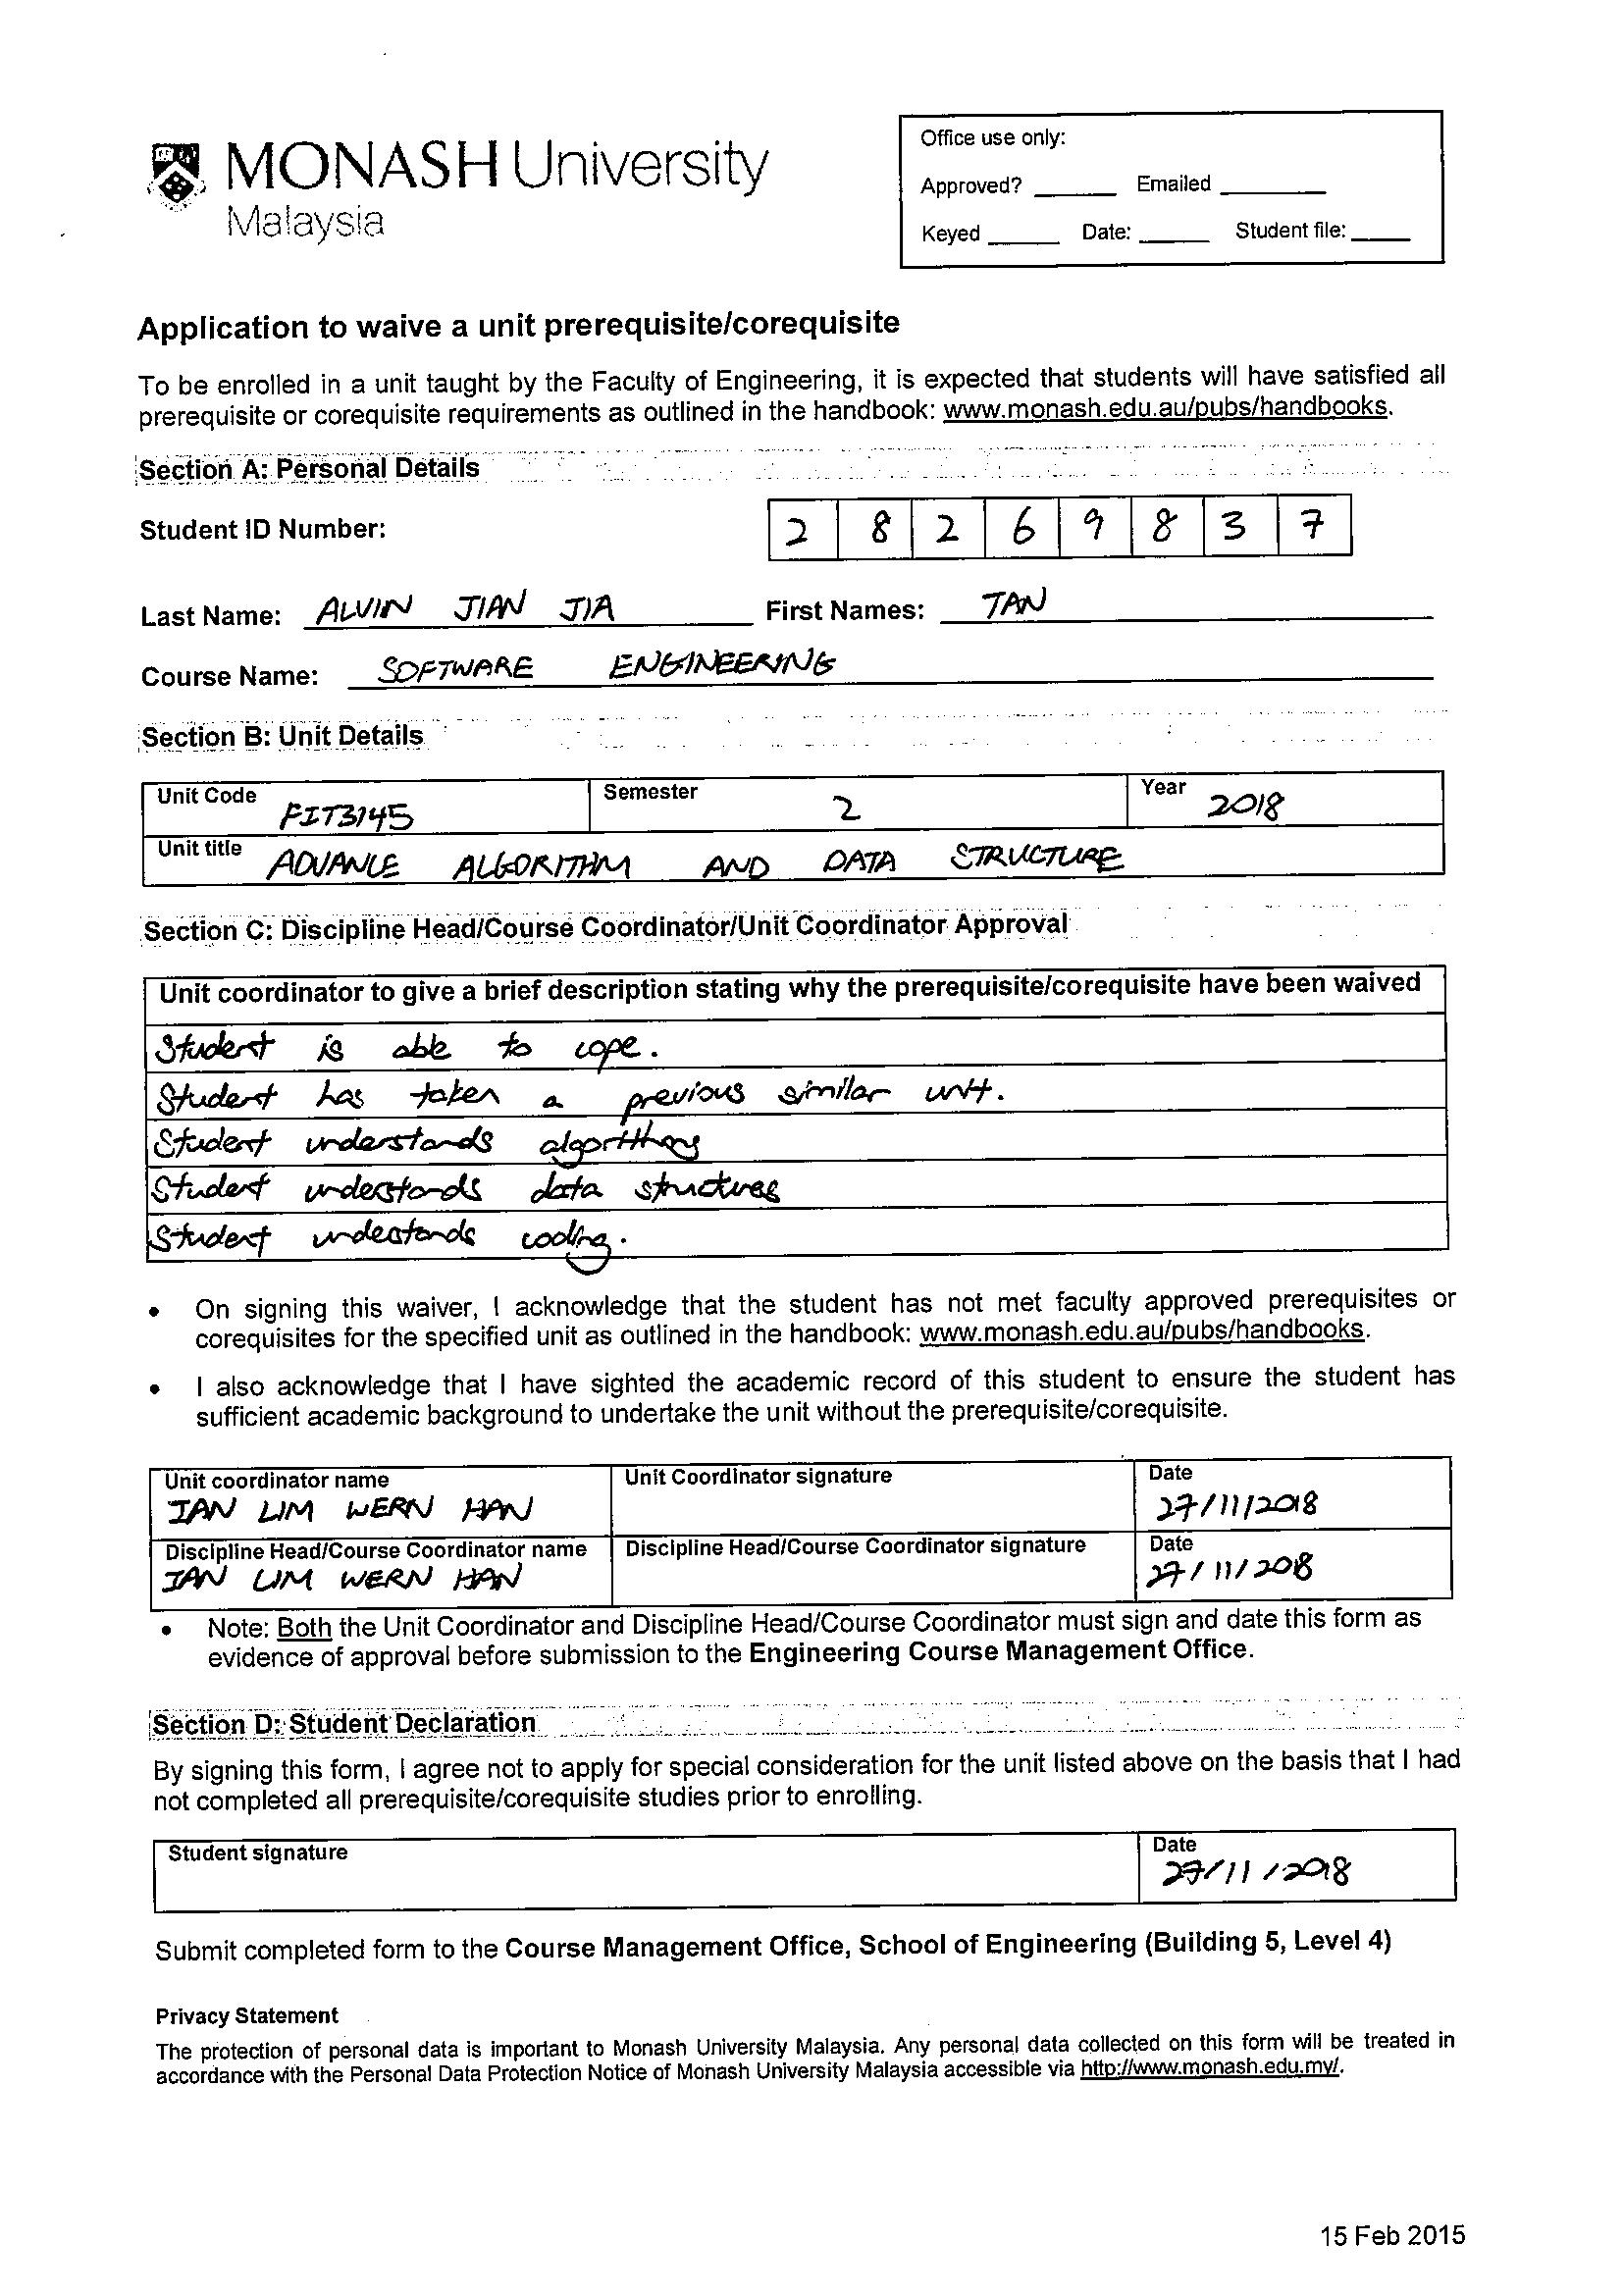 MONASH University
Malaysia
Office use only:
Approved? ______ Emailed ______
Keyed ______ Date: ______ Student file: ______
Application to waive a unit prerequisite/corequisite
To be enrolled in a unit taught by the Faculty of Engineering, it is expected that students will have satisfied all
prerequisite or corequisite requirements as outlined in the handbook: www.monash.edu.au/pubs/handbooks.
Section A: Personal Details
Student ID Number: 2 8 2 6 9 8 3 7
Last Name: ALVIN JIAN JIA First Names: TAN
Course Name: SOFTWARE ENGINEERING
Section B: Unit Details
Unit Code FIT3145 Semester 2 Year 2018
Unit title ADVANCE ALGORITHM AND DATA STRUCTURE
Section C: Discipline Head/Course Coordinator/Unit Coordinator Approval
Unit coordinator to give a brief description stating why the prerequisite/corequisite have been waived
Student is able to cope.
Student has taken a previous similar unit.
Student understands algorithms
Student understands data structures
Student understands coding.
• On signing this waiver, I acknowledge that the student has not met faculty approved prerequisites or
corequisites for the specified unit as outlined in the handbook: www.monash.edu.au/pubs/handbooks.
• I also acknowledge that I have sighted the academic record of this student to ensure the student has
sufficient academic background to undertake the unit without the prerequisite/corequisite.
Unit coordinator name Unit Coordinator signature Date
IAN LIM WERN HAN 27/11/2018
Discipline Head/Course Coordinator name Discipline Head/Course Coordinator signature Date
IAN LIM WERN HAN 27/11/2018
• Note: Both the Unit Coordinator and Discipline Head/Course Coordinator must sign and date this form as
evidence of approval before submission to the Engineering Course Management Office.
Section D: Student Declaration
By signing this form, I agree not to apply for special consideration for the unit listed above on the basis that I had
not completed all prerequisite/corequisite studies prior to enrolling.
Student signature Date
27/11/2018
Submit completed form to the Course Management Office, School of Engineering (Building 5, Level 4)
Privacy Statement
The protection of personal data is important to Monash University Malaysia. Any personal data collected on this form will be treated in
accordance with the Personal Data Protection Notice of Monash University Malaysia accessible via http://www.monash.edu.my/.
15 Feb 2015